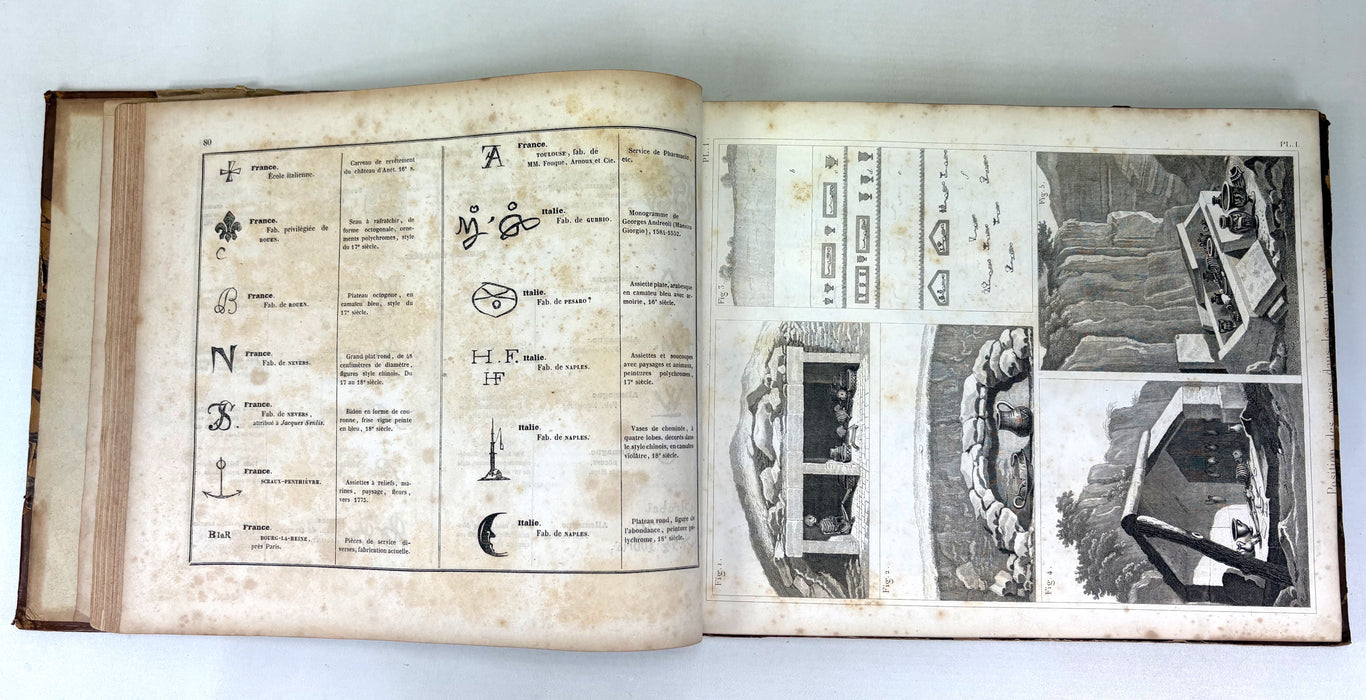 80
France.
École italienne.
Carreau de revêtement
du château d'Anet. 16e s.
France.
Fab. privilégiée de
ROUEN.
C
Seau à rafraîchir, de
forme octogonale, orne-
ments polychromes, style
du 17e siècle.
B
France.
Fab. de ROUEN.
Plateau octogone, en
camaïeu bleu, style du
17e siècle.
N
France.
Fab. de NEVERS.
Grand plat rond, de 46
centimètres de diamètre,
figures style chinois. Du
17 au 18e siècle.
France.
Fab. de NEVERS,
attribué à Jacques Senlis.
Bidon en forme de cou-
ronne, frise vigne peinte
en bleu, 18e siècle.
France.
SCEAUX-PENTHIÈVRE.
Assiettes à reliefs, ma-
rines, paysage, fleurs,
vers 1775.
BlaR
France.
BOURG-LA-REINE,
près Paris.
Pièces de service di-
verses, fabrication actuelle.
A
France.
TOULOUSE, fab. de
MM. Fouque, Arnoux et Cie.
Service de Pharmacie,
etc.
Italie.
Fab. de GUBBIO.
Monogramme de
Georges Andreoli (Maestro
Giorgio), 1504-1552.
Italie.
Fab. de PESARO?
Assiette plate, arabesque
en camaïeu bleu avec ar-
moirie, 16e siècle.
H. F.
HF
Italie.
Fab. de NAPLES.
Assiettes et soucoupes
avec paysages et animaux,
peintures polychromes,
17e siècle.
Italie.
Fab. de NAPLES.
Vases de cheminée, à
quatre lobes, décorés dans
le style chinois, en camaïeu
violâtre, 18e siècle.
Italie.
Fab. de NAPLES.
Plateau rond, figure de
l'abondance, peinture po-
lychrome, 18e siècle.
PL. I.
PL. I.
Fig 3
b
Fig 5.
Fig 1.
Fig 2.
Fig 4.